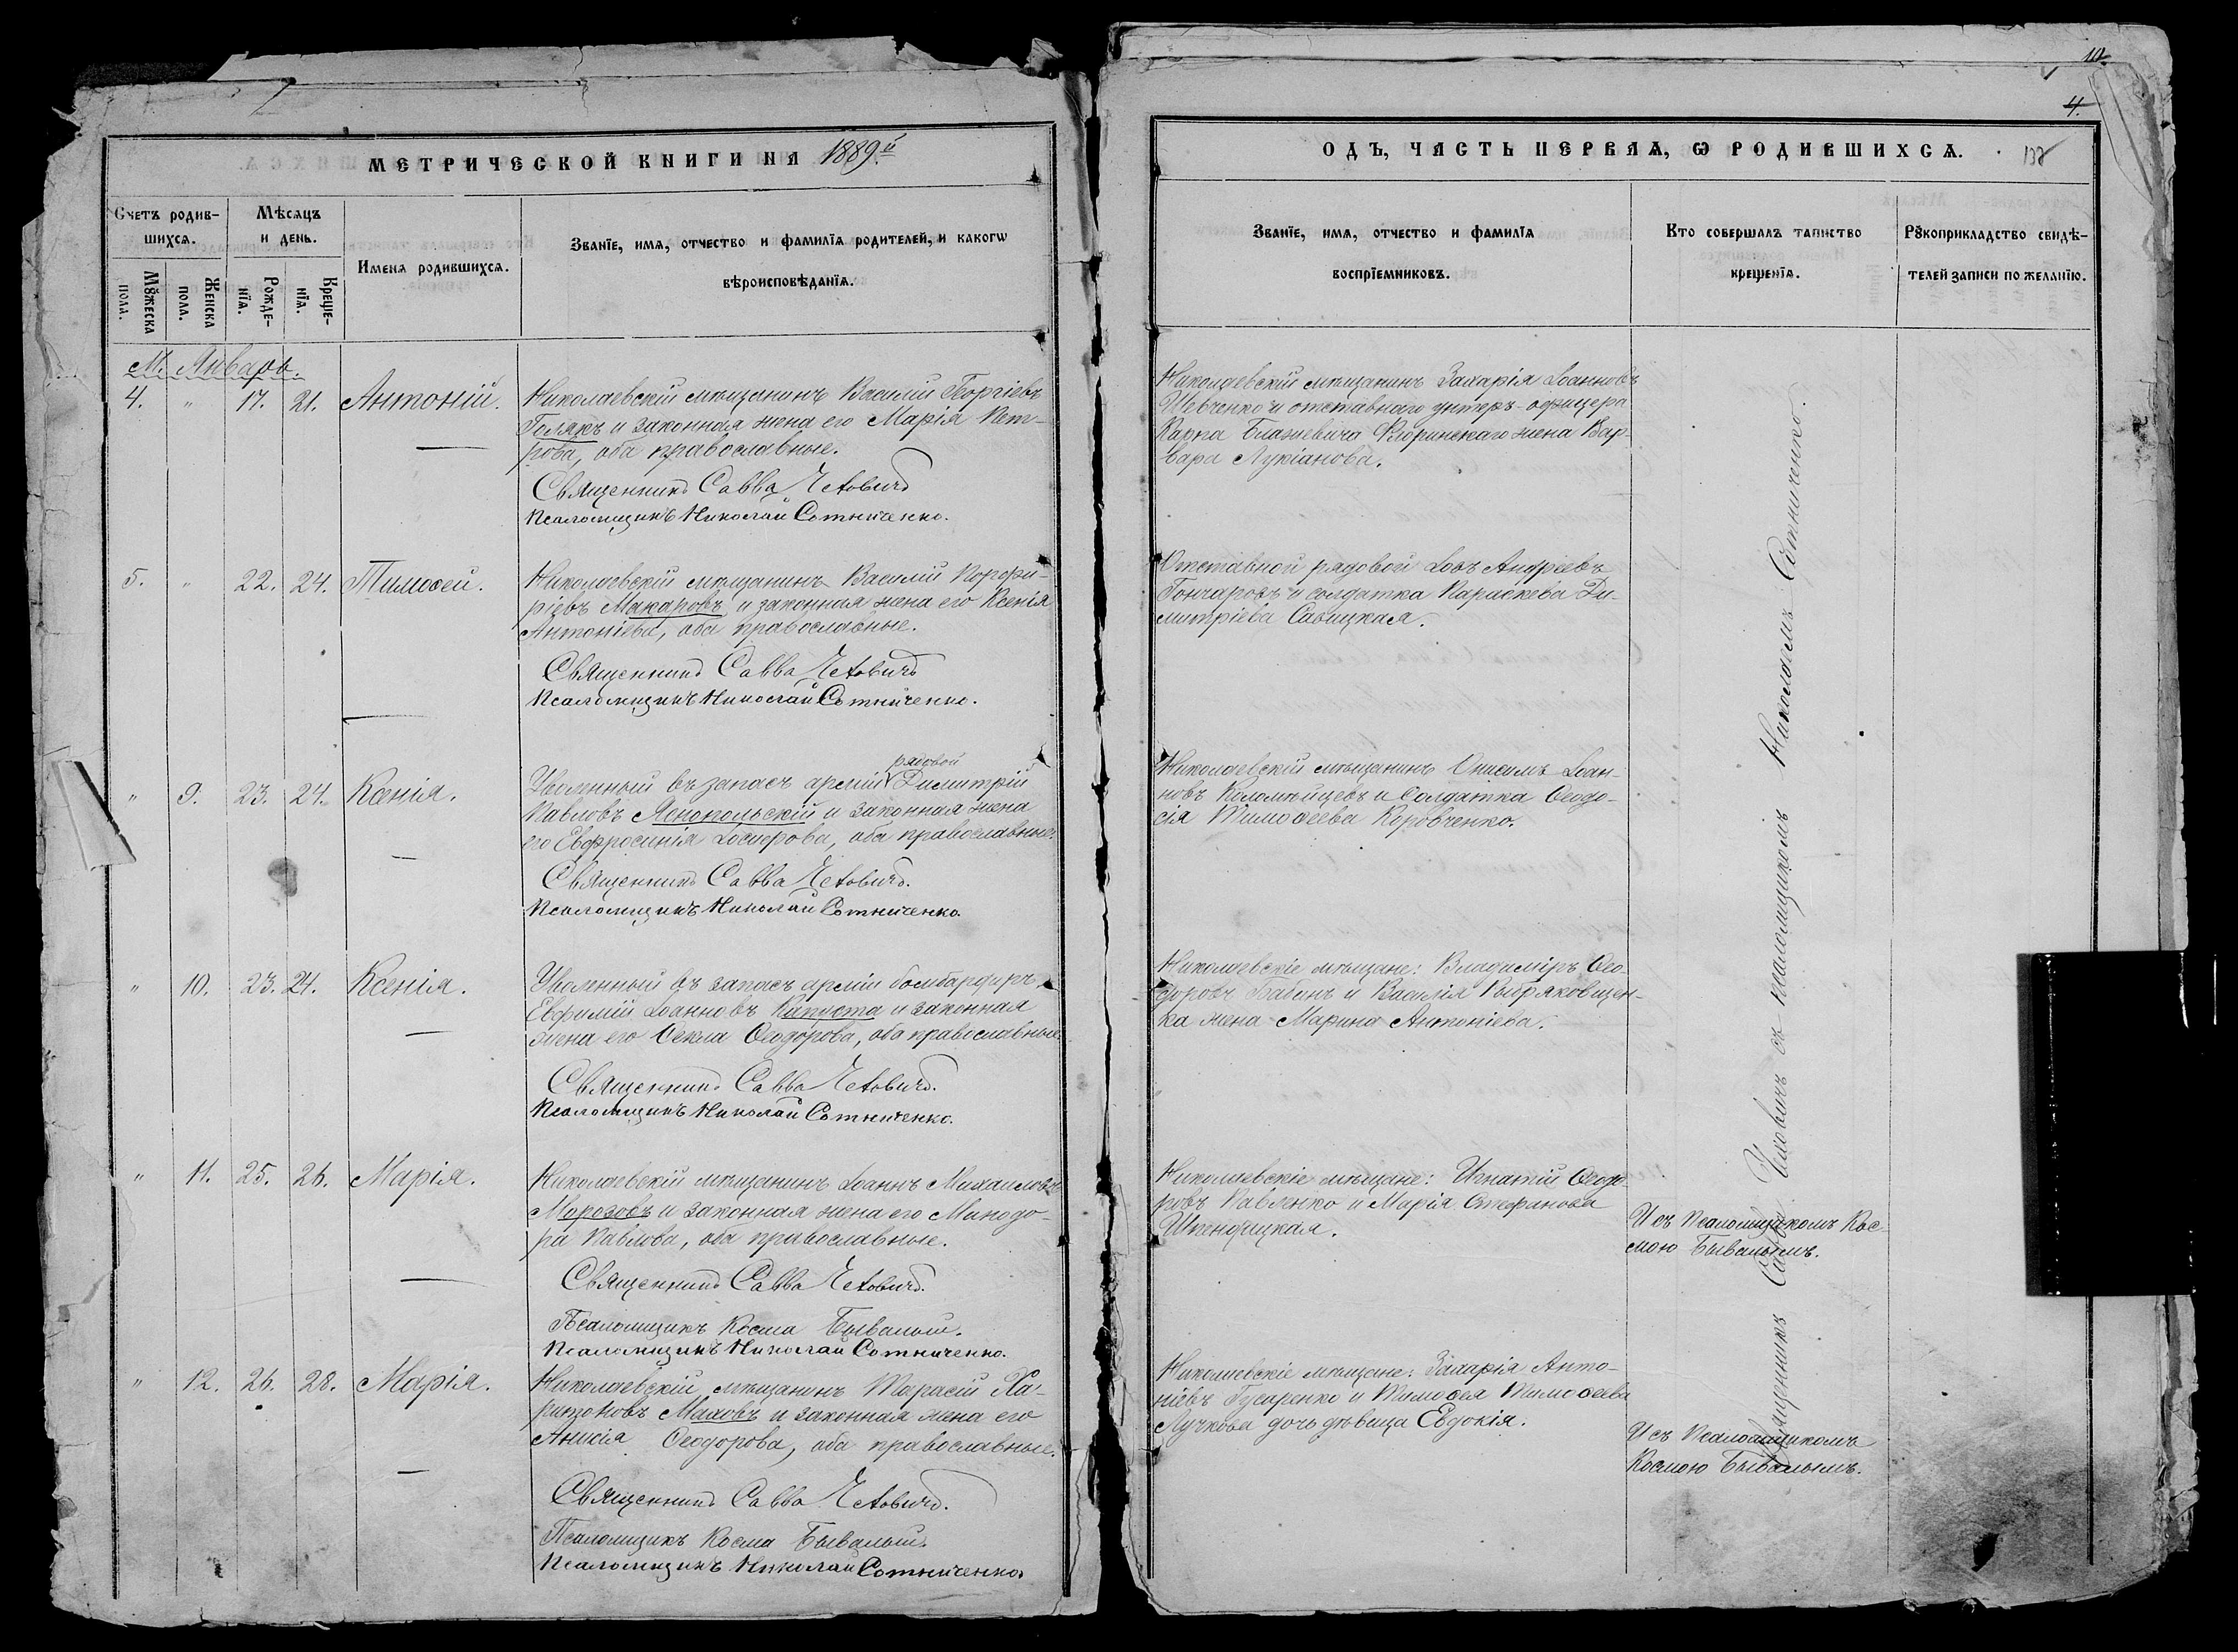 МЕТРИЧЕСКОЙ КНИГИ НА 1889й
Счетъ родив-
шихсѧ.
Мѣсѧцъ
и день.
Мꙋжеска
пола.
Женска
пола.
Рожде-
нїѧ.
Креще-
нїѧ.
Имена родившихсѧ.
Званїе, имѧ, отчество и фамилїѧ родителей, и какогѡ
вѣроисповѣданїѧ.
М. Январь.
4. " 17. 21. Антоній.
Николаевскій мѣщанинъ Василій Георгіевъ
Голякъ и законная жена его Марія Пет-
рова, оба православные.
Священникъ Савва
Псаломщикъ Николай Сотниченко.
5. " 22. 24. Тимоѳей.
Николаевскій мѣщанинъ Василій Порфи-
ріевъ Макаровъ и законная жена его Ксенія
Антоніева, оба православные.
Священникъ Савва
Псаломщикъ Николай Сотниченко.
" 9. 23. 24. Ксенія.
рядовой
Уволенный въ запасъ арміи Димитрій
Павловъ Яснопольскій и законная жена
его Евфросинія Іосифова, оба православные.
Священникъ Савва
Псаломщикъ Николай Сотниченко.
" 10. 23. 24. Ксенія.
Уволенный въ запасъ арміи бомбардиръ
Евфимій Іоанновъ Капуста и законная
жена его Ѳекла Ѳеодорова, оба православные.
Священникъ Савва
Псаломщикъ Николай Сотниченко.
" 11. 25. 26. Марія.
Николаевскій мѣщанинъ Іоаннъ Михаиловъ
Морозовъ и законная жена его Минодо-
ра Павлова, оба православные.
Священникъ Савва
Псаломщикъ Косма Бывалый.
Псаломщикъ Николай Сотниченко.
" 12. 26. 28. Марія.
Николаевскій мѣщанинъ Тарасій Ха-
ритоновъ Маховъ и законная жена его
Анисія Ѳеодорова, оба православные.
Священникъ Савва
Псаломщикъ Косма Бывалый.
Псаломщикъ Николай Сотниченко.
4.
ОДЪ, ЧАСТЬ ПЕРВАѦ, Ѡ РОДИВШИХСѦ.
Званїе, имѧ, отчество и фамилїѧ
воспрїемниковъ.
Кто совершалъ таинство
крещенїѧ.
Рꙋкоприкладство свидѣ-
телей записи по желанїю.
Николаевскій мѣщанинъ Захарія Іоанновъ
Шевченко и отставнаго унтеръ-офицера
Карпа жена Вар-
вара Лукіанова.
Отставной рядовой Іовъ Андреевъ
Гончаровъ и солдатка Параскева Ди-
митріева Савицкая.
Николаевскій мѣщанинъ Онисимъ Іоан-
новъ Коломѣйцевъ и Солдатка Ѳеодо-
сія Тимоѳеева Коровченко.
Николаевскіе мѣщане: Владиміръ Ѳео-
доровъ Бабинъ и Василія
жена Марина Антоніева.
Николаевскіе мѣщане: Игнатій Ѳеодо-
ровъ Павленко и Марія Стефанова
Николаевскіе мѣщане: Захарія Анто-
ніевъ Гусаренко и Тимоѳея Тимоѳеева
Лучкова дочь дѣвица Евдокія.
Священникъ Савва съ псаломщикомъ Николаемъ Сотниченко.
И съ Псаломщикомъ Кос-
мою Бывалымъ.
И съ Псаломщикомъ
Космою Бывалымъ.